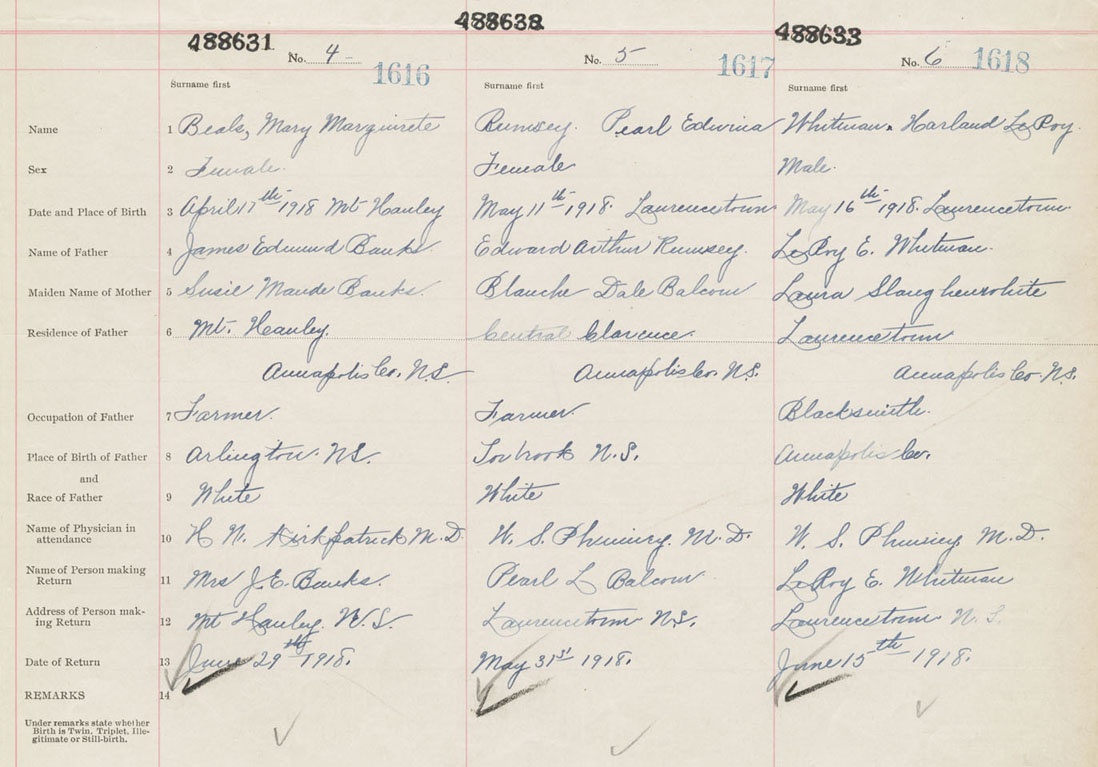 488631 488632 488633
No. 4 1616 No. 5 1617 No. 6 1618
Surname first Surname first Surname first
Name 1 Beals, Mary Marguirete Rumsey. Pearl Edwina Whitman. Harland LeRoy.
Sex 2 Female. Female Male.
Date and Place of Birth 3 April 17th 1918 Mt Hanley May 11th 1918. Laurencetown May 16th 1918. Laurencetown
Name of Father 4 James Edmund Banks Edward Arthur Rumsey. LeRoy E. Whitman.
Maiden Name of Mother 5 Susie Maude Banks. Blanche Dale Balcom Laura Slaughenwhite
Residence of Father 6 Mt. Hanley. Central Clarence. Laurencetown
Annapolis Co. N.S. Annapolis Co. N.S. Annapolis Co. N.S.
Occupation of Father 7 Farmer. Farmer. Blacksmith.
Place of Birth of Father 8 Arlington. N.S. Torbrook N.S. Annapolis Co.
and
Race of Father 9 White White White
Name of Physician in
attendance 10 H. N. Kirkpatrick M.D. W. S. Phinney. M.D. W. S. Phinney. M.D.
Name of Person making
Return 11 Mrs J.E. Banks. Pearl L Balcom LeRoy E. Whitman
Address of Person mak-
ing Return 12 Mt Hanley. N.S. Laurencetown N.S. Laurencetown N.S.
Date of Return 13 June 29th 1918. May 31st 1918. June 15th 1918.
REMARKS 14
Under remarks state whether
Birth is Twin, Triplet, Ille-
gitimate or Still-birth.